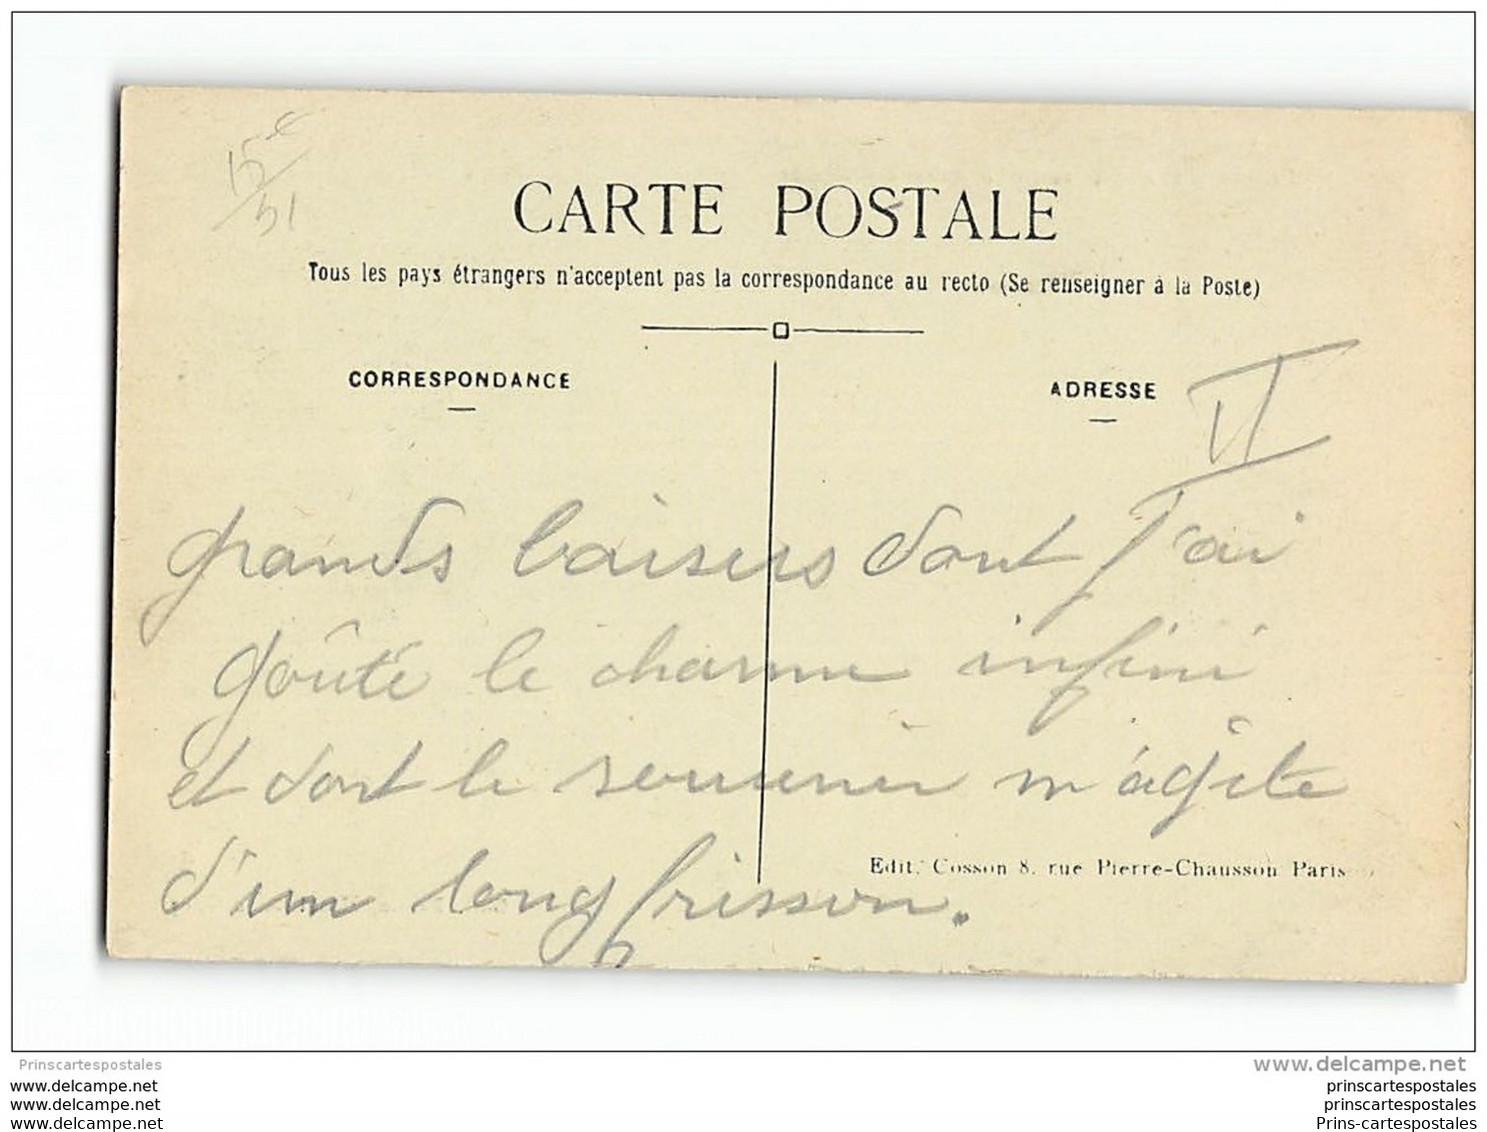 15e
51
CARTE POSTALE
Tous les pays étrangers n'acceptent pas la correspondance au recto (Se renseigner à la Poste)
CORRESPONDANCE
ADRESSE
VI
grands baisers dont j'ai
goûté le charme infini
et dont le souvenir m'agite
d'un long frisson.
Edit. Cosson 8, rue Pierre-Chausson Paris
Prinscartespostales
www.delcampe.net
www.delcampe.net
prinscartespostales
www.delcampe.net
prinscartespostales
www.delcampe.net
Prins-cartespostales